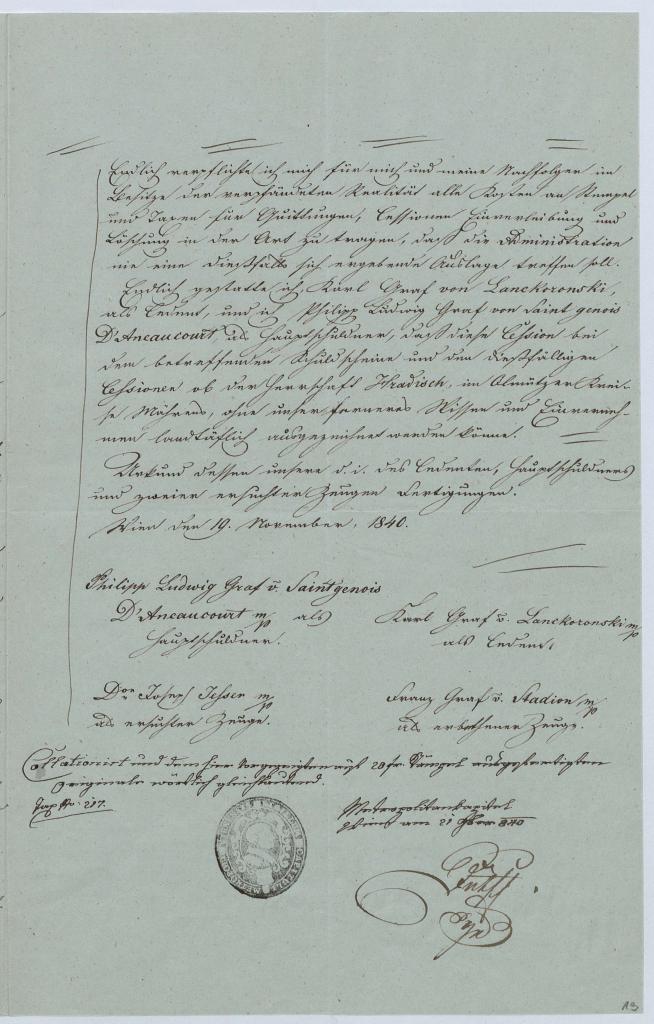 Endlich verpflichte ich mich für mich und meine Nachfolger im
Besitze der verpfändeten Realität alle Kosten an Stempel
und Taxen für Quittungen, Cessionen Einverleibung und
Löschung in der Art zu tragen, daß die Administration
nie eine dießfalls sich ergebende Auslage treffen soll.
Endlich gestatte ich, Karl Graf von Lanckoronski,
als Cedent, und ich Philipp Ludwig Graf von Saint genois
D'Aneaucourt, als Hauptschuldner, daß diese Cession bei
dem betreffenden Schuldscheine und den dießfälligen
Cessionen ob der Herrschaft Hradisch, im Olmützer Krei-
se Mährens, ohne unser ferneres Wissen und Einverneh-
men landtäflich ausgezeichnet werden könne.
Urkund dessen unsere d. i. des Cedenten, Hauptschuldners
und zweier ersuchter Zeugen Fertigungen.
Wien den 19. November, 1840.
Philipp Ludwig Graf v. Saintgenois
D'Aneaucourt m/p als
Hauptschuldner.
Karl Graf v. Lanckoronski m/p
als Cedent,
Dor Joseph Jessen m/p
als ersuchter Zeuge.
Franz Graf v. Stadion m/p
als erbethener Zeuge.
Collationirt und dem hier vorgezeigten auf 20 fr Stämpel ausgefertigten
Originale wörtlich gleichlautend.
No: 217.
Metropolitankapitel
am 21 840
13